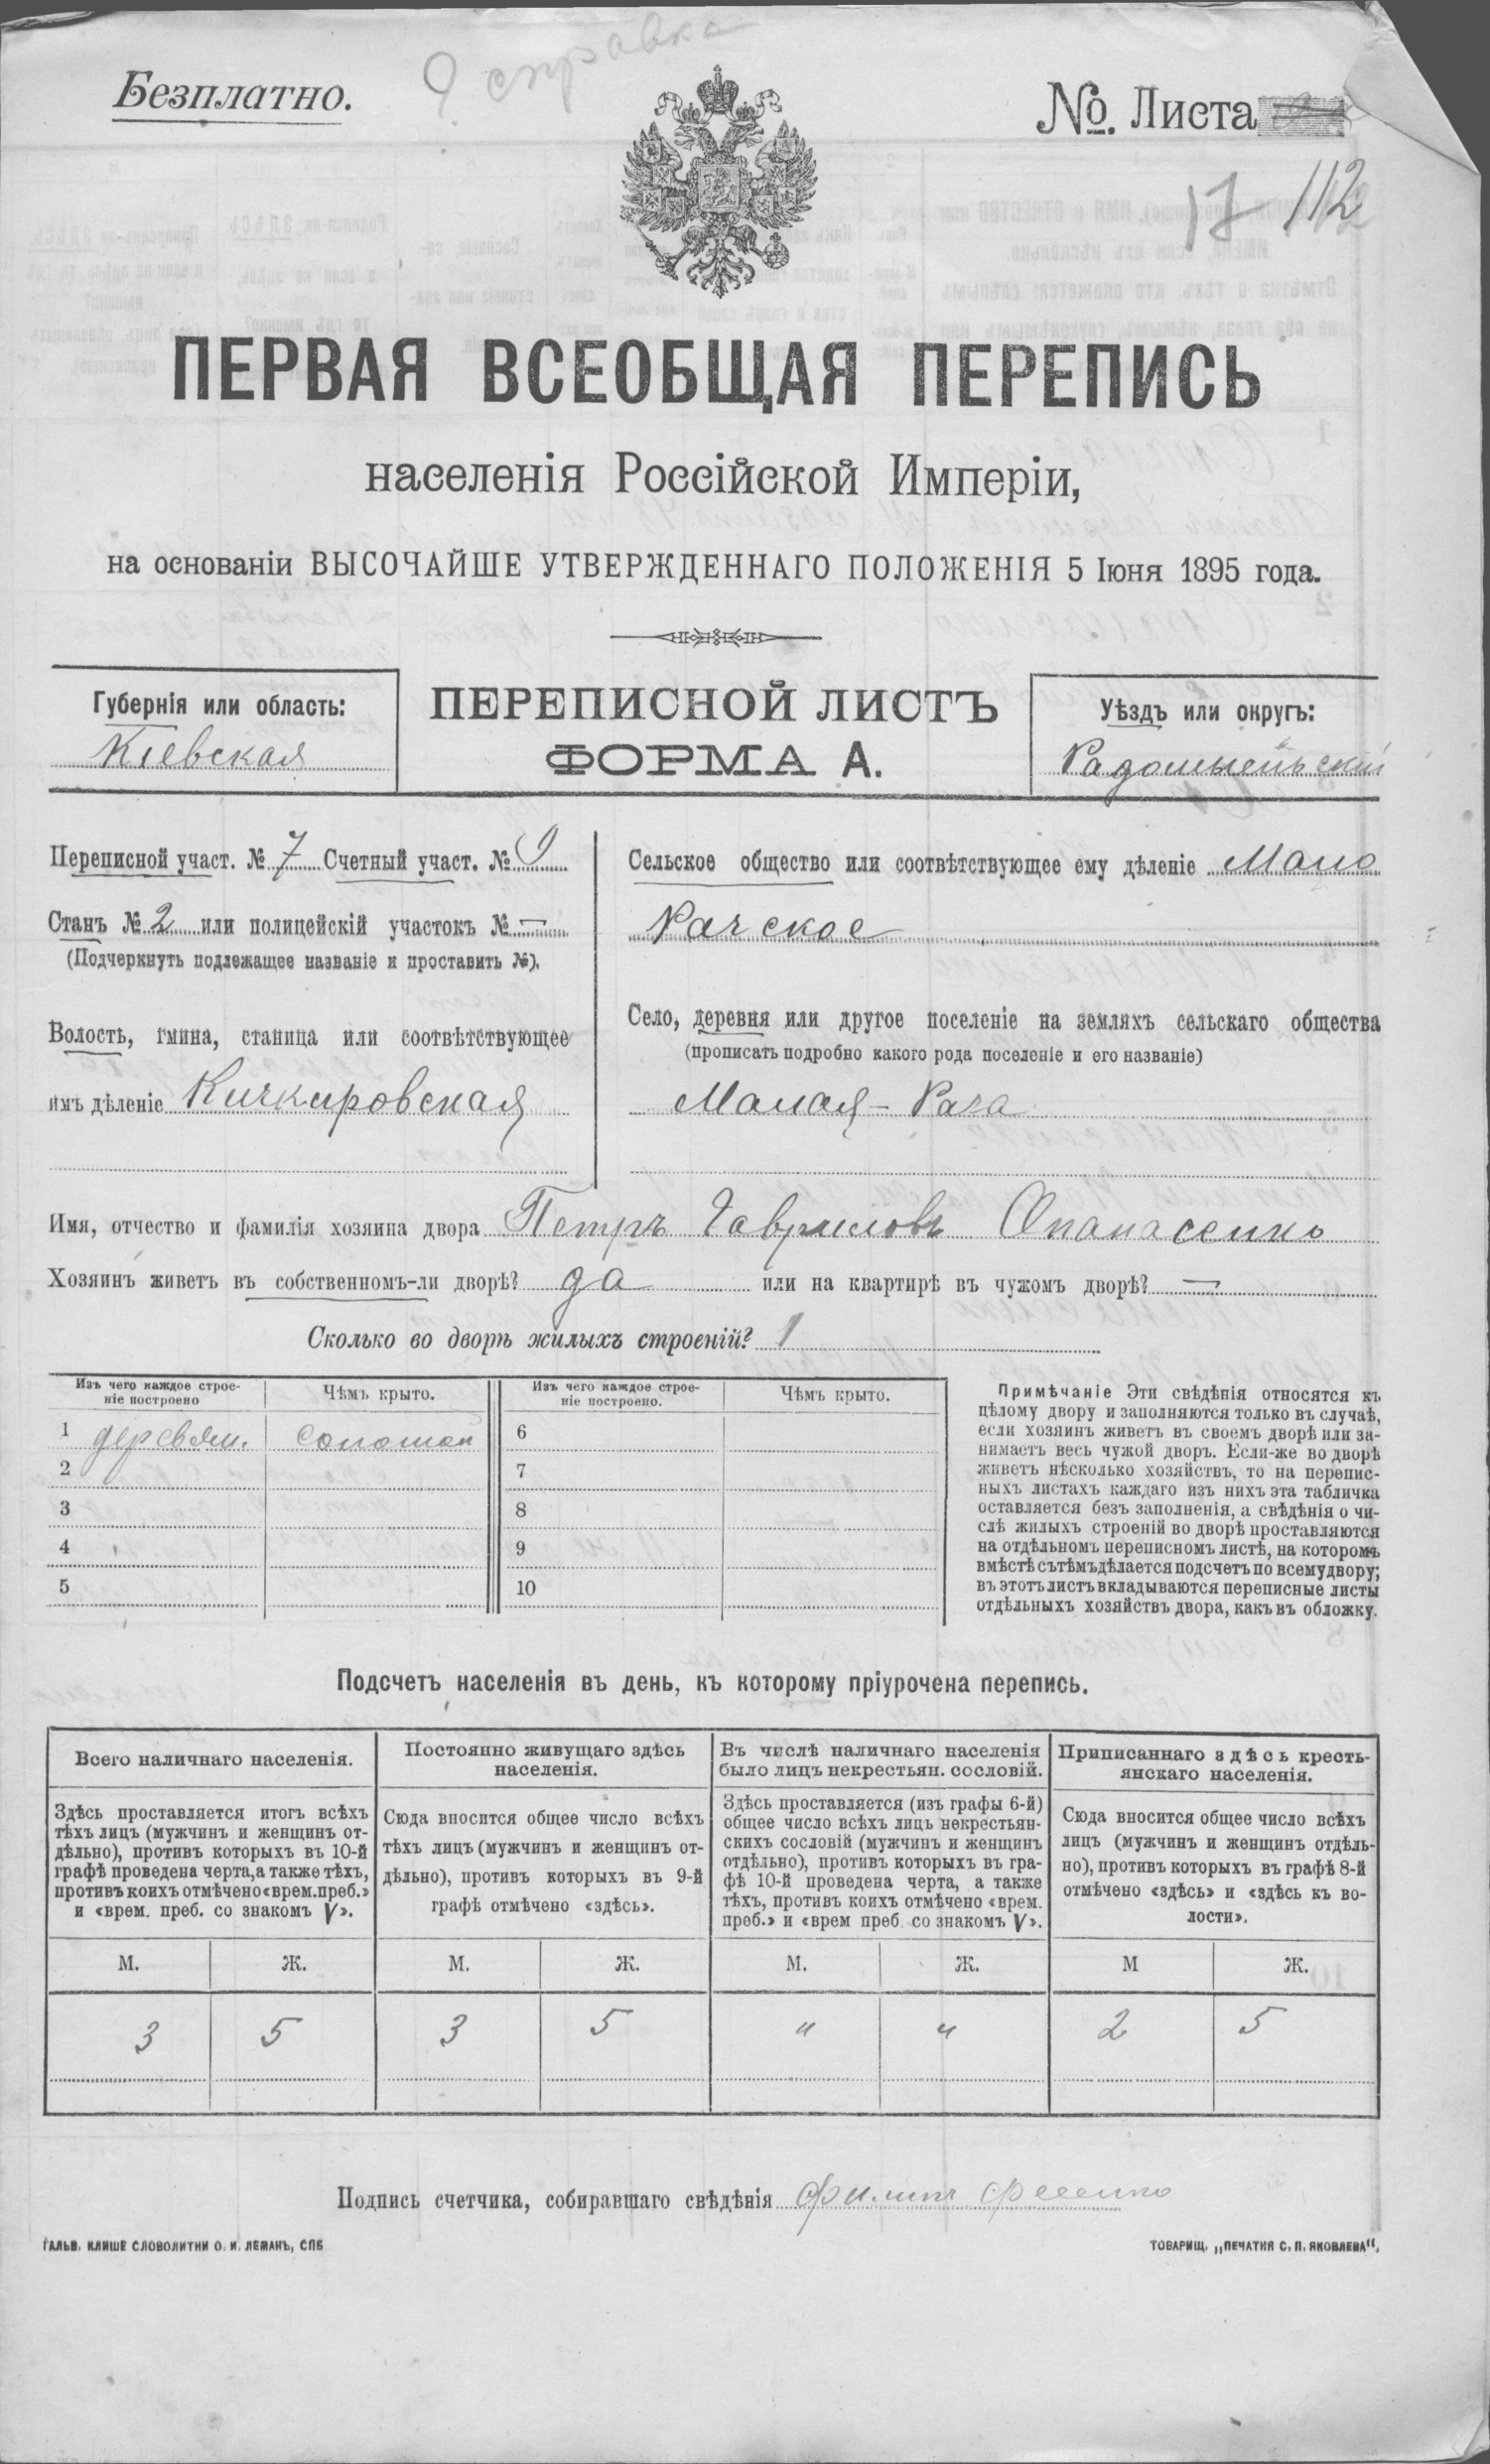 Безплатно.
справка
№. Листа
17 112
ПЕРВАЯ ВСЕОБЩАЯ ПЕРЕПИСЬ
населенія Россійской Имперіи,
на основаніи ВЫСОЧАЙШЕ УТВЕРЖДЕННАГО ПОЛОЖЕНІЯ 5 Іюня 1895 года.
Губернія или область:
Кіевская
ПЕРЕПИСНОЙ ЛИСТЪ
ФОРМА А.
Уѣздъ или округъ:
Радомысльскій
Переписной участ. № 7 Счетный участ. № 9
Станъ № 2 или полицейскій участокъ № —
(Подчеркнуть подлежащее названіе и проставить №).
Волость, гмина, станица или соотвѣтствующее
имъ дѣленіе Кичкировская
Сельское общество или соотвѣтствующее ему дѣленіе Мало
Рачское
Село, деревня или другое поселеніе на земляхъ сельскаго общества
(прописать подробно какого рода поселеніе и его названіе)
Малая - Рача
Имя, отчество и фамилія хозяина двора Петръ Гавриловъ Опанасенко
Хозяинъ живетъ въ собственномъ-ли дворѣ? да или на квартирѣ въ чужомъ дворѣ? —
Сколько во дворѣ жилыхъ строеній? 1
Изъ чего каждое строе-
ніе построено
Чѣмъ крыто.
Изъ чего каждое строе-
ніе построено.
Чѣмъ крыто.
1 деревян. соломой 6
2 7
3 8
4 9
5 10
Примѣчаніе Эти свѣдѣнія относятся къ
цѣлому двору и заполняются только въ случаѣ,
если хозяинъ живетъ въ своемъ дворѣ или за-
нимаетъ весь чужой дворъ. Если-же во дворѣ
живетъ нѣсколько хозяйствъ, то на перепис-
ныхъ листахъ каждаго изъ нихъ эта табличка
оставляется безъ заполненія, а свѣдѣнія о чи-
слѣ жилыхъ строеній во дворѣ проставляются
на отдѣльномъ переписномъ листѣ, на которомъ
вмѣстѣ съ тѣмъ дѣлается подсчетъ по всему двору;
въ этотъ листъ вкладываются переписные листы
отдѣльныхъ хозяйствъ двора, какъ въ обложку.
Подсчетъ населенія въ день, къ которому пріурочена перепись.
Всего наличнаго населенія.
Здѣсь проставляется итогъ всѣхъ
тѣхъ лицъ (мужчинъ и женщинъ от-
дѣльно), противъ которыхъ въ 10-й
графѣ проведена черта, а также тѣхъ,
противъ коихъ отмѣчено «врем. преб.»
и «врем. преб. со знакомъ V».
Постоянно живущаго здѣсь
населенія.
Сюда вносится общее число всѣхъ
тѣхъ лицъ (мужчинъ и женщинъ от-
дѣльно), противъ которыхъ въ 9-й
графѣ отмѣчено «здѣсь».
Въ числѣ наличнаго населенія
было лицъ некрестьян. сословій.
Здѣсь проставляется (изъ графы 6-й)
общее число всѣхъ лицъ некрестьян-
скихъ сословій (мужчинъ и женщинъ
отдѣльно), противъ которыхъ въ гра-
фѣ 10-й проведена черта, а также
тѣхъ, противъ коихъ отмѣчено «врем.
преб.» и «врем преб. со знакомъ V».
Приписаннаго здѣсь кресть-
янскаго населенія.
Сюда вносится общее число всѣхъ
лицъ (мужчинъ и женщинъ отдѣль-
но), противъ которыхъ въ графѣ 8-й
отмѣчено «здѣсь» и «здѣсь къ во-
лости».
М. Ж. М. Ж. М. Ж. М Ж.
3 5 3 5 " " 2 5
Подпись счетчика, собиравшаго свѣдѣнія Филипъ
ГАЛЬВ. КЛИШЕ СЛОВОЛИТНИ О. И. ЛЕМАНЪ, СПБ
ТОВАРИЩ. „ПЕЧАТНЯ С. П. ЯКОВЛЕВА".